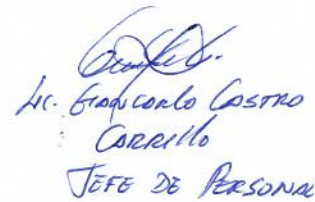 Lic. GIANCARLO CASTRO
CARRILLO
JEFE DE PERSONAL